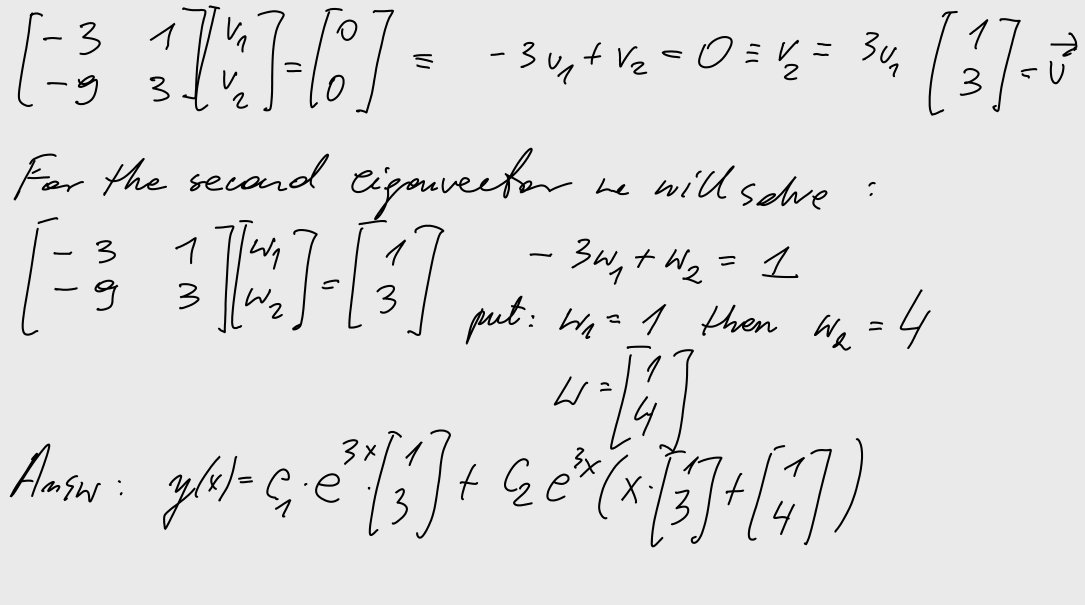 [-3 1; -9 3][v₁; v₂] = [0; 0] ≡ -3v₁ + v₂ = 0 ≡ v₂ = 3v₁ [1; 3] = v⃗
For the second eigenvector we will solve :
[-3 1; -9 3][w₁; w₂] = [1; 3] -3w₁ + w₂ = 1
put: w₁ = 1 then w₂ = 4
w = [1; 4]
Answ : y(x) = C₁·e³ˣ·[1; 3] + C₂ e³ˣ(x·[1; 3] + [1; 4])